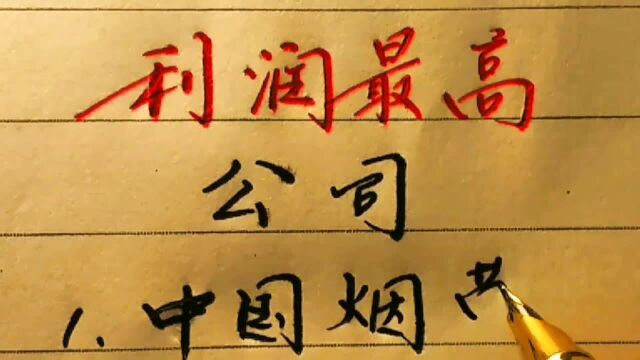 利润最高
公司
1.中国烟